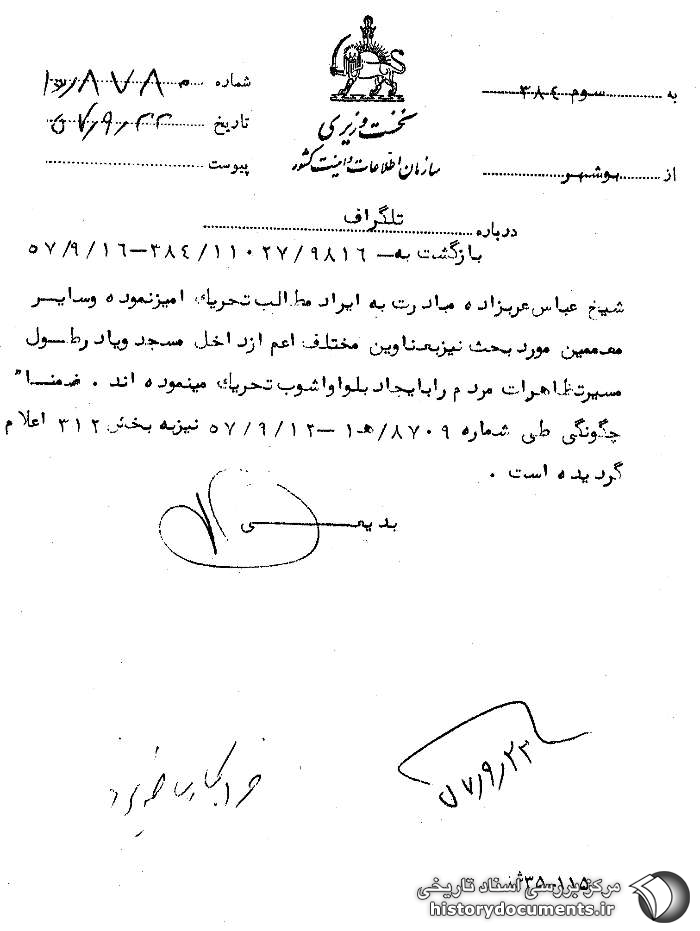 نخست وزیری
سازمان اطلاعات و امنیت کشور
به سوم ۳۸٤
از بوشهر
شماره ۸۷۸۰
تاریخ ۵۷٫۹٫۲۲
پیوست
درباره تلگراف
بازگشت به- ۹۸۱۶/۱۱۰۲۷/۳۸٤-۵۷/۹/۱۶
شیخ عباس عربزاده مبادرت به ایراد مطالب تحریک امیزنموده وسایر
معممین مورد بحث نیزبعناوین مختلف اعم ازداخل مسجد ویادرطول
مسیرتظاهرات مردم رابایجاد بلواواشوب تحریک مینموده اند . ضمنا"
چگونگی طی شماره ۸۷۰۹/هـ۱ -۵۷/۹/۱۲ نیزبه بخش ۳۱۲ اعلام
گردیده است .
بدیعی
۵۷٫۹٫۲۳
۳۵-۱۱۵
مرکز بررسی اسناد تاریخی
historydocuments.ir